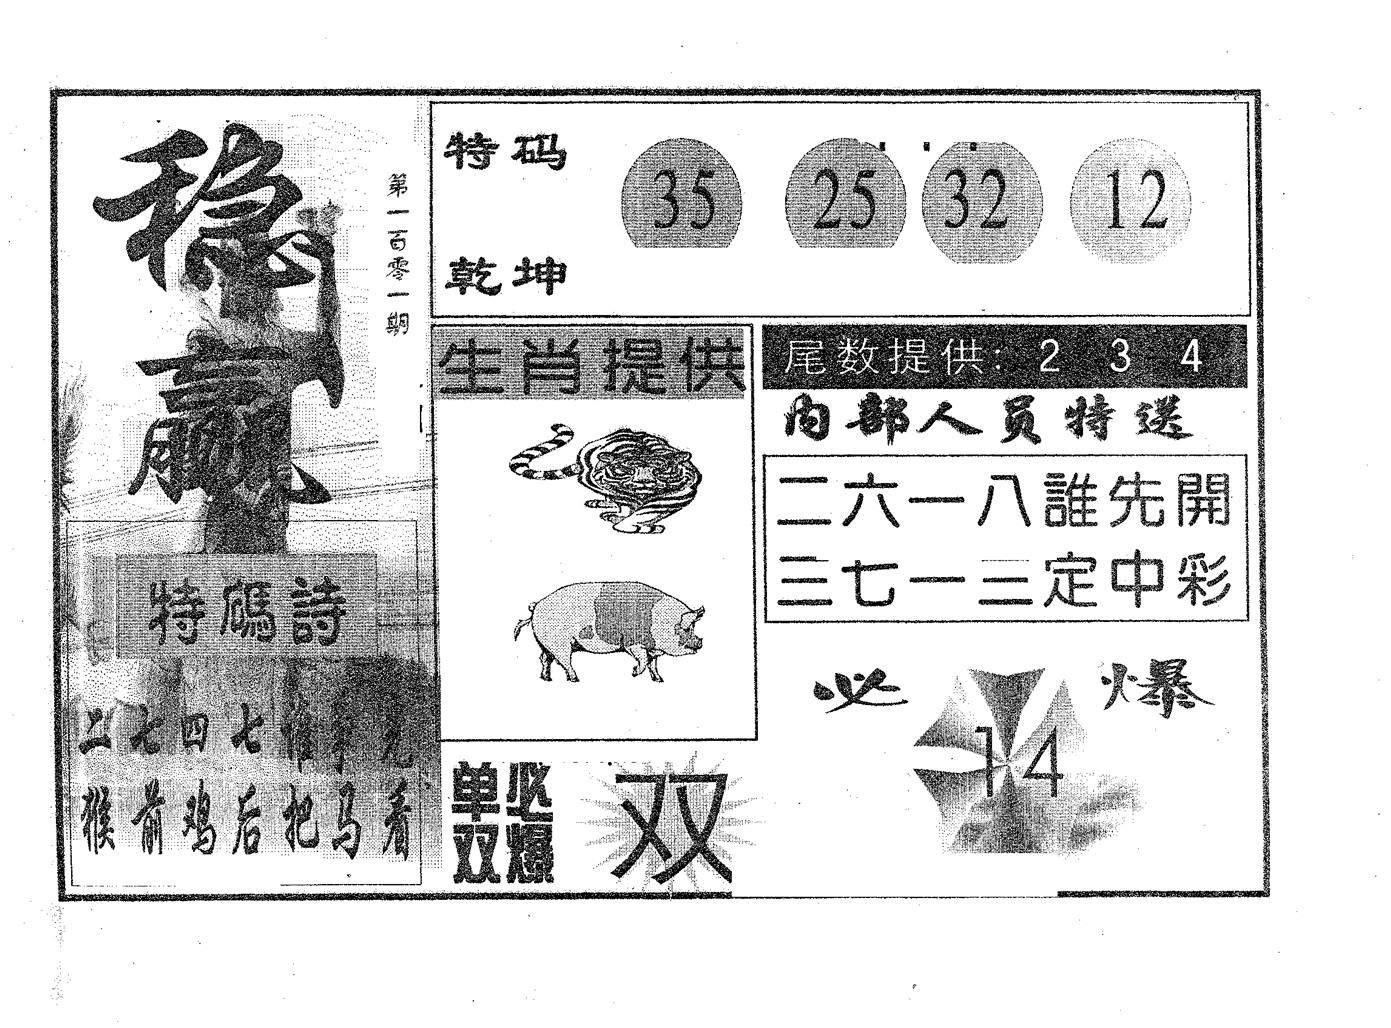 稳赢
第一百零一期
特码
乾坤
35 25 32 12
生肖提供
尾数提供: 2 3 4
内部人员特送
二六一八誰先開
三七一三定中彩
特碼詩
二七四七谁
猴前鸡后把马看
单双必爆
双
必爆
14